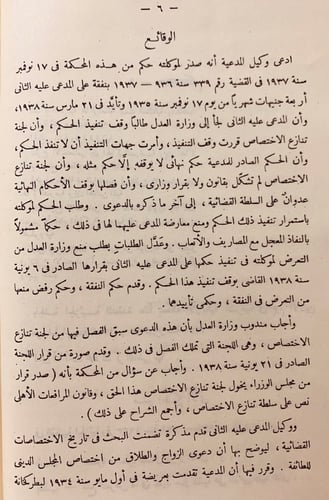 — ٦ —
الوقائع
ادعى وكيل المدعية أنه صدر لموكلته حكم من هذه المحكمة فى ١٧ نوفمبر
سنة ١٩٣٧ فى القضية رقم ٣٣٩ سنة ٩٣٦ – ١٩٣٧ بنفقة على المدعى عليه الثانى
أربعة جنيهات شهريا من يوم ١٧ نوفمبر سنة ١٩٣٥ وتأيد فى ٢١ مارس سنة ١٩٣٨،
وأن المدعى عليه الثانى لجأ إلى وزارة العدل طالبا وقف تنفيذ الحكم، وأن لجنة
تنازع الاختصاص قررت وقف التنفيذ، وأمرت جهات التنفيذ أن لا تنفذ الحكم،
وأن الحكم الصادر للمدعية حكم نهائى لا يوقفه إلا حكم مثله، وأن لجنة تنازع
الاختصاص لم تشكل بقانون ولا بقرار وزارى، وأن فصلها بوقف الأحكام النهائية
عدوان على السلطة القضائية، إلى آخر ما ذكره بالدعوى. وطلب الحكم لموكلته
باستمرار تنفيذ ذلك الحكم ومنع معارضة المدعى عليهما لها فى ذلك، حكما مشمولا
بالنفاذ المعجل مع المصاريف والأتعاب. وعدل الطلبات بطلب منع وزارة العدل من
التعرض لموكلته فى تنفيذ حكمها على المدعى عليه الثانى بقرارها الصادر فى ٦ يونية
سنة ١٩٣٨ القاضى بوقف تنفيذ هذا الحكم. وقدم حكم النفقة، وحكم رفض منعها
من التعرض فى النفقة، وحكمى تأييدها.
وأجاب مندوب وزارة العدل بأن هذه الدعوى سبق الفصل فيها من لجنة تنازع
الاختصاص، وهى اللجنة التى تملك الفصل فى ذلك. وقدم صورة من قرار اللجنة
الصادر فى ٢١ يونية سنة ١٩٣٨. وأجاب عن سؤال من المحكمة بأنه (صدر قرار
من مجلس الوزراء يخول لجنة تنازع الاختصاص هذا الحق، وقانون المرافعات الأهلى
نص على سلطة تنازع الاختصاص، وأجمع الشراح على ذلك).
ووكيل المدعى عليه الثانى قدم مذكرة تضمنت البحث فى تاريخ الاختصاصات
القضائية، ليوضح بها أن دعوى الزواج والطلاق من اختصاص المجلس الملى
للطائفة. وقرر فيها أن المدعية تقدمت بعريضة فى أول مايو سنة ١٩٣٤ لبطركخانة